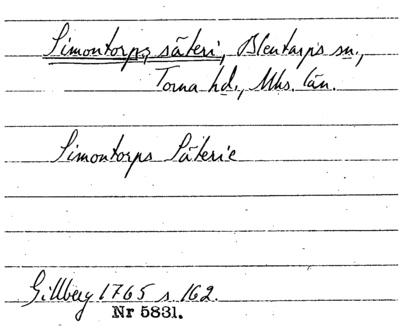 Simontorps säteri, Blentarps sn.,
Torna hd., Mhs. län.
Simontorps Säterie
Gillberg 1765 s 162.
Nr 5831.